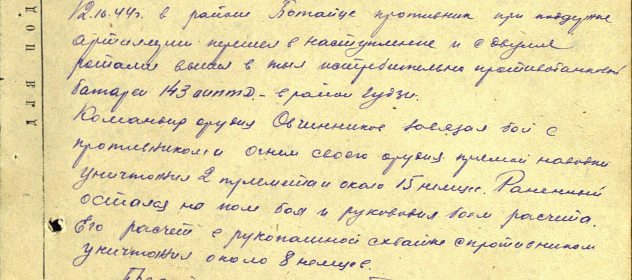 12.10.44г. в районе Ботайце противник при поддержке
артилерии перешел в наступление и с двумя
ротами вышел в тыл истребительно противотанковой
батареи 143 оиптд - в район Гудзи.
Командир орудия Овчинников завязал бой с
противником и огнем своего орудия прямой наводки
уничтожил 2 пулемета и около 15 немцев. Раненный
остался на поле боя и руководил боем расчета.
Его расчет в рукопашной схватке с противником
уничтожил около 8 немцев.
ДОП ДЛЯ